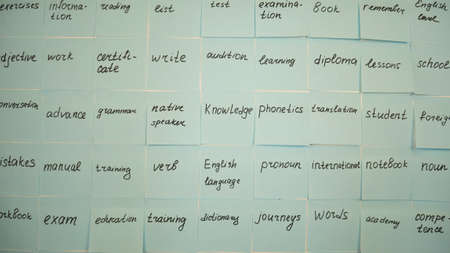 exercises informa- reading list test examina- book remember English
tion tion level
adjective work certifi- write audition learning diploma lessons school
cate
conversation advance grammar native Knowledge phonetics translation student foreign
speaker
mistakes manual training verb English pronoun international notebook noun
language
workbook exam education training dictionary journeys words academy compe-
tence